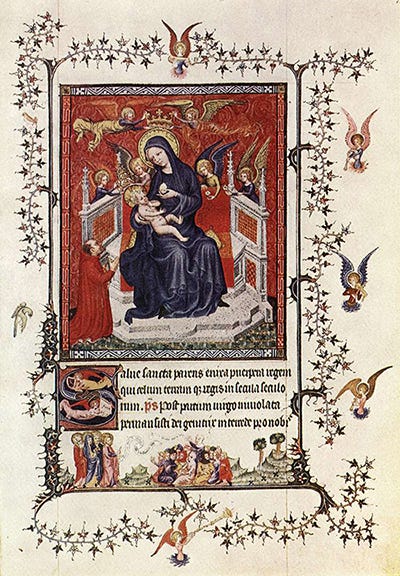 Salue sancta parens enixa puerpera regem
qui celum terram qz regis in secula seculo
rum. ps Post partum uirgo inuiolata
permansisti dei genitrix intercede pro nobi